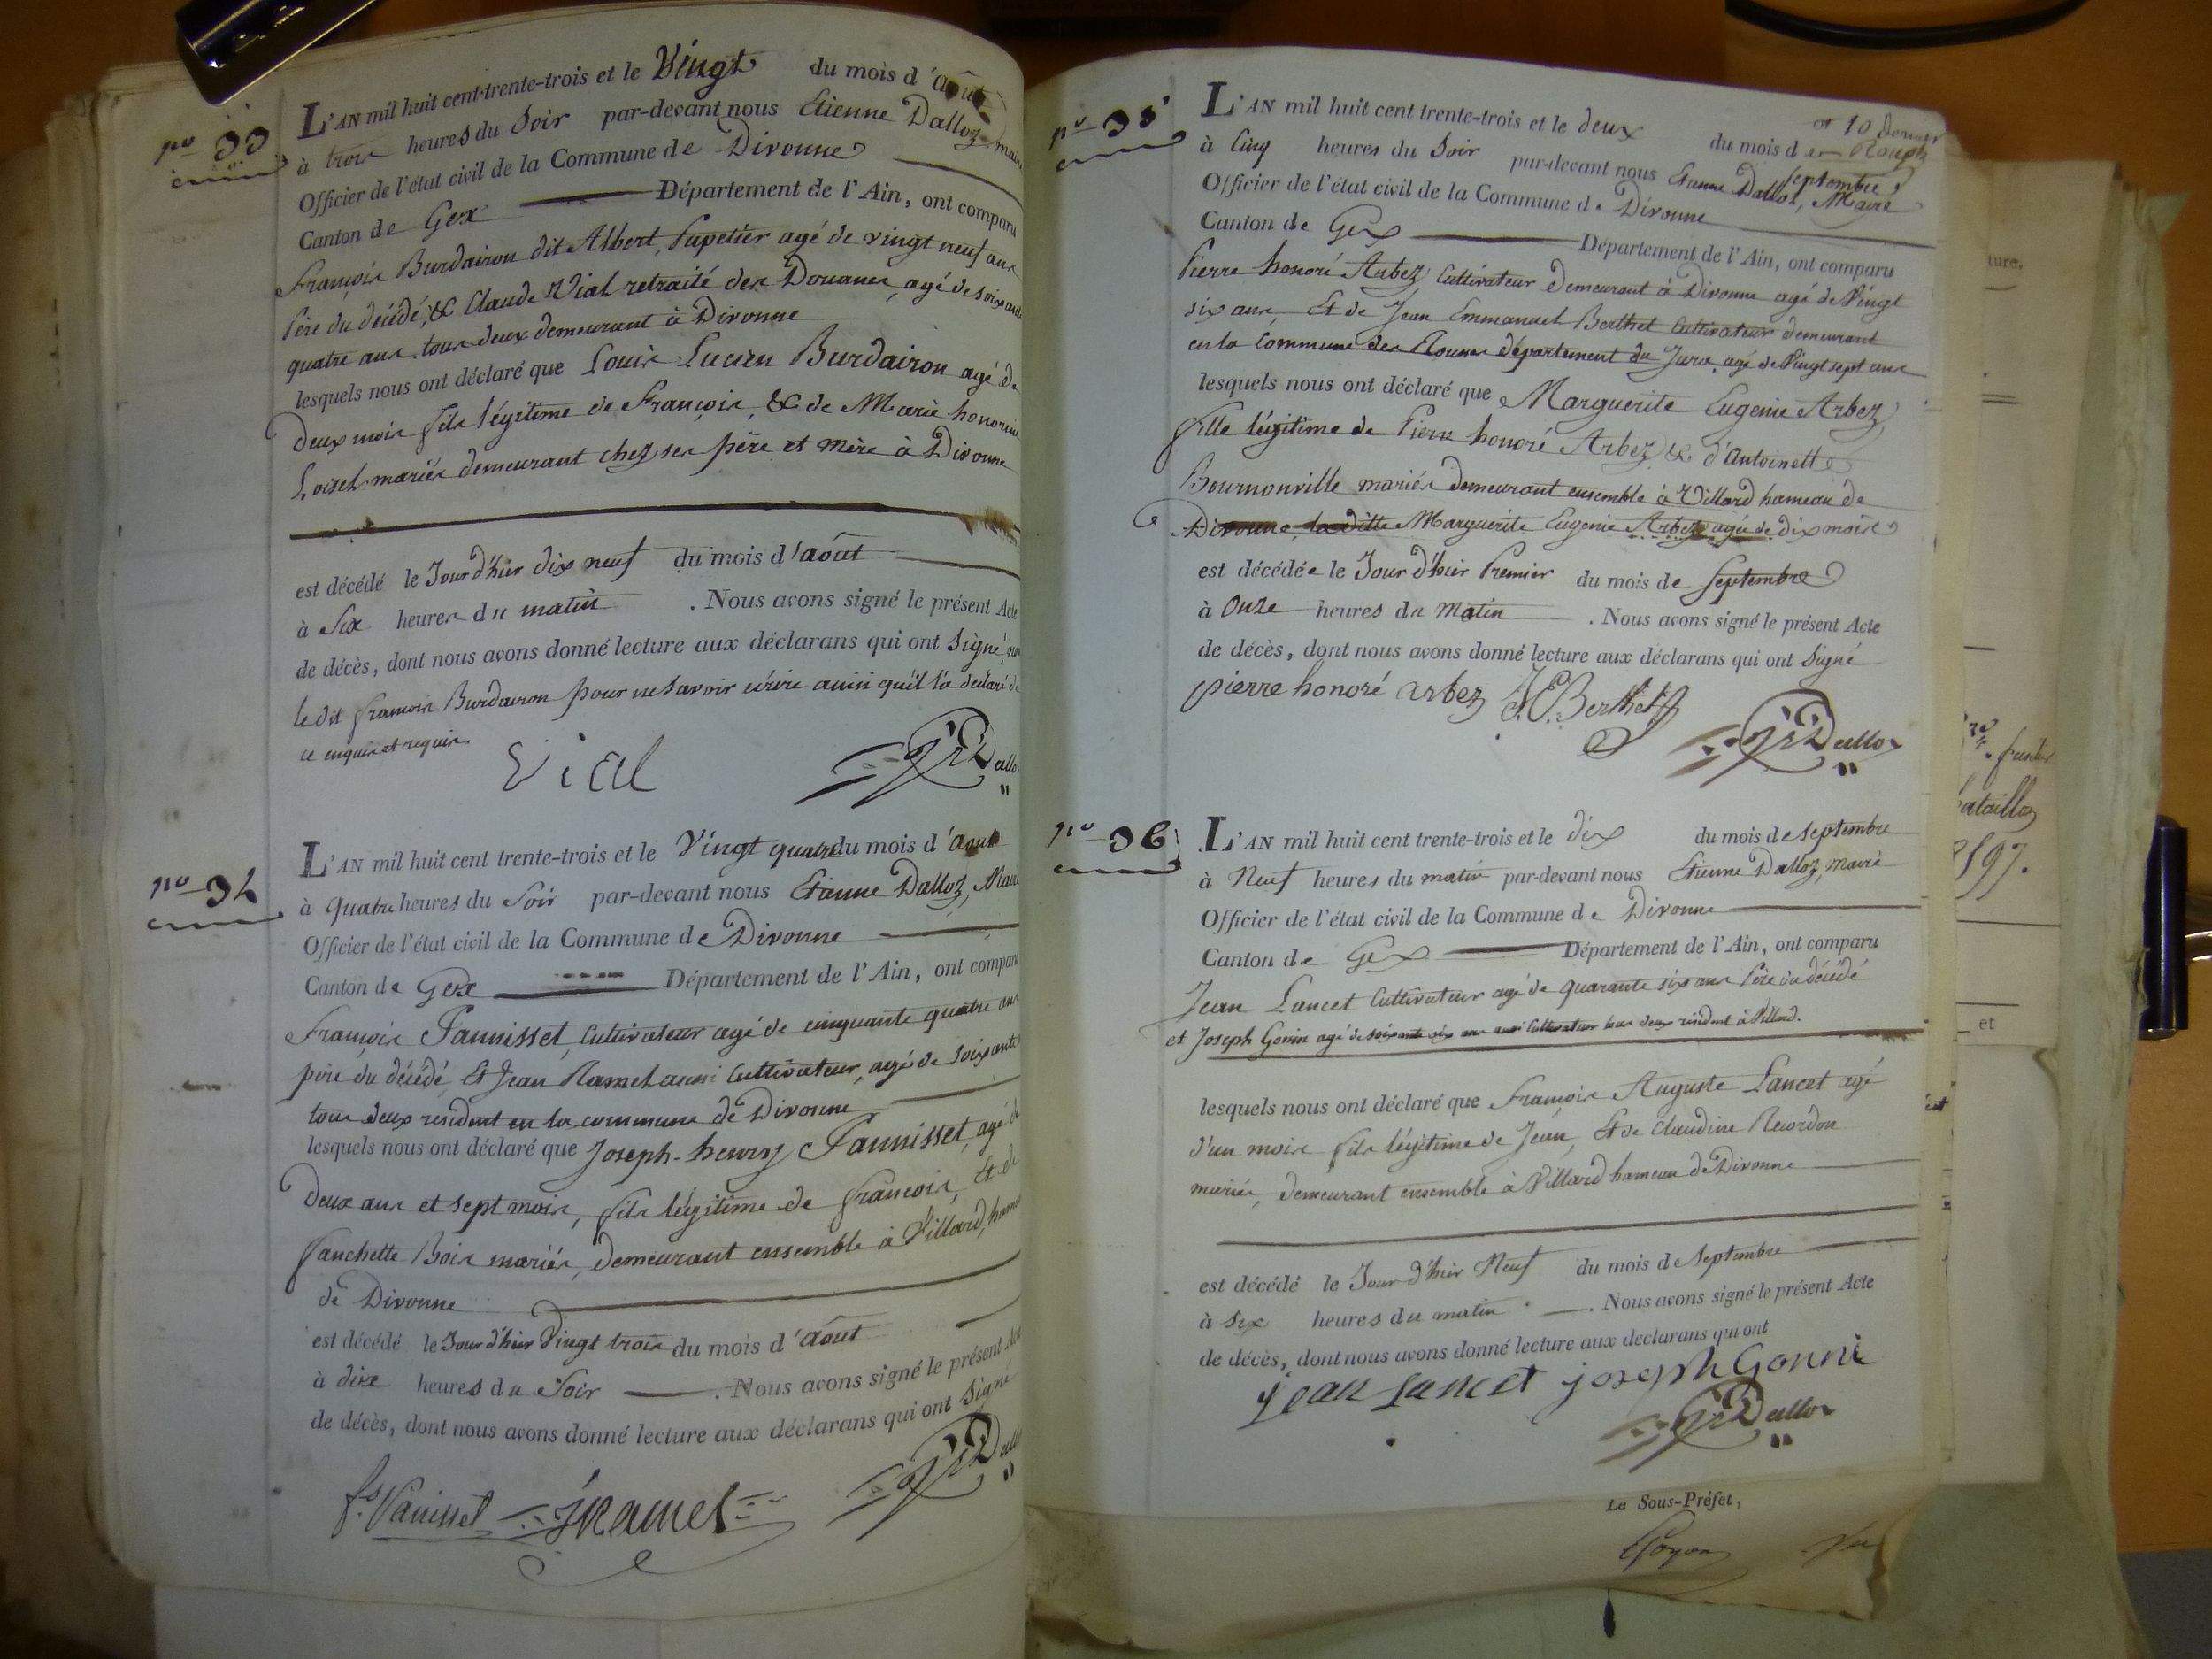 nº 33
L'AN mil huit cent trente-trois et le Vingt du mois d'août
à trois heures du Soir par-devant nous Etienne Dalloz maire
Officier de l'état civil de la Commune de Divonne
Canton de Gex Département de l'Ain, ont comparu
François Burdairon dit Albert, Papetier agé de vingt neuf ans
Père du décédé, & Claude Vial retraité des Douanes, agé de soixante
quatre ans, tous deux demeurant à Divonne
lesquels nous ont déclaré que Louis Lucien Burdairon agé de
Deux mois fils légitime de François, & de Marie honorine
Loisel mariés demeurant chez ses père et mère à Divonne
est décédé le Jour d'hier dix neuf du mois d'août
à Six heures du matin . Nous avons signé le présent Acte
de décès, dont nous avons donné lecture aux déclarans qui ont Signé, non
le dit François Burdairon pour ne Savoir écrire ainsi qu'il l'a déclaré de
ce enquis et requis.
Vial
Dalloz
nº 34
L'AN mil huit cent trente-trois et le Vingt quatre du mois d'août
à quatre heures du Soir par-devant nous Etienne Dalloz, Maire
Officier de l'état civil de la Commune de Divonne
Canton de Gex Département de l'Ain, ont comparu
François Vaunisset, Cultivateur agé de cinquante quatre ans
père du décédé, Et Jean Ramel aussi Cultivateur, agé de Soixante
tous deux résidant en la commune de Divonne
lesquels nous ont déclaré que Joseph-henry Vaunisset, agé de
Deux ans et sept mois, fils légitime de François, Et de
Fanchette Bois mariés, Demeurant ensemble à Villard, hameau
de Divonne
est décédé le Jour d'hier Vingt trois du mois d'août
à dix heures du Soir . Nous avons signé le présent Acte
de décès, dont nous avons donné lecture aux déclarans qui ont Signé
JRamel
Dalloz
nº 35
L'AN mil huit cent trente-trois et le deux du mois de
Septembre
à Cinq heures du Soir par-devant nous Etienne Dalloz, Maire
Officier de l'état civil de la Commune de Divonne
Canton de Gex Département de l'Ain, ont comparu
Pierre honoré Arbez Cultivateur Demeurant à Divonne agé de Vingt
six ans, Et de Jean Emmanuel Berthet Cultivateur demeurant
en la Commune des Rousses département du Jura, agé de Vingt sept ans
lesquels nous ont déclaré que Marguerite Eugenie Arbez,
fille légitime de Pierre honoré Arbez & d'Antoinette
Bournonville mariés demeurant ensemble à Villard hameau de
Divonne, la ditte Marguerite Eugenie Arbez agée de dix mois
est décédée le Jour d'hier Premier du mois de Septembre
à Onze heures du Matin . Nous avons signé le présent Acte
de décès, dont nous avons donné lecture aux déclarans qui ont Signé
pierre honoré arbez J.E. Berthet
Dalloz
nº 36
L'AN mil huit cent trente-trois et le dix du mois de Septembre
à Neuf heures du matin par-devant nous Etienne Dalloz, Maire
Officier de l'état civil de la Commune de Divonne
Canton de Gex Département de l'Ain, ont comparu
Jean Lancet Cultivateur agé de quarante six ans Père du décédé
et Joseph Gonin agé de soixante six ans aussi Cultivateur tous deux résidant à Villard.
lesquels nous ont déclaré que François Auguste Lancet agé
d'un mois fils légitime de Jean, Et de Claudine Recordon
mariés, demeurant ensemble à Villard hameau de Divonne
est décédé le Jour d'hier Neuf du mois de Septembre
à Six heures du matin . Nous avons signé le présent Acte
de décès, dont nous avons donné lecture aux déclarans qui ont
jean lancet joseph Gonni
Dalloz
Le Sous-Préfet,
ture.
197.
et